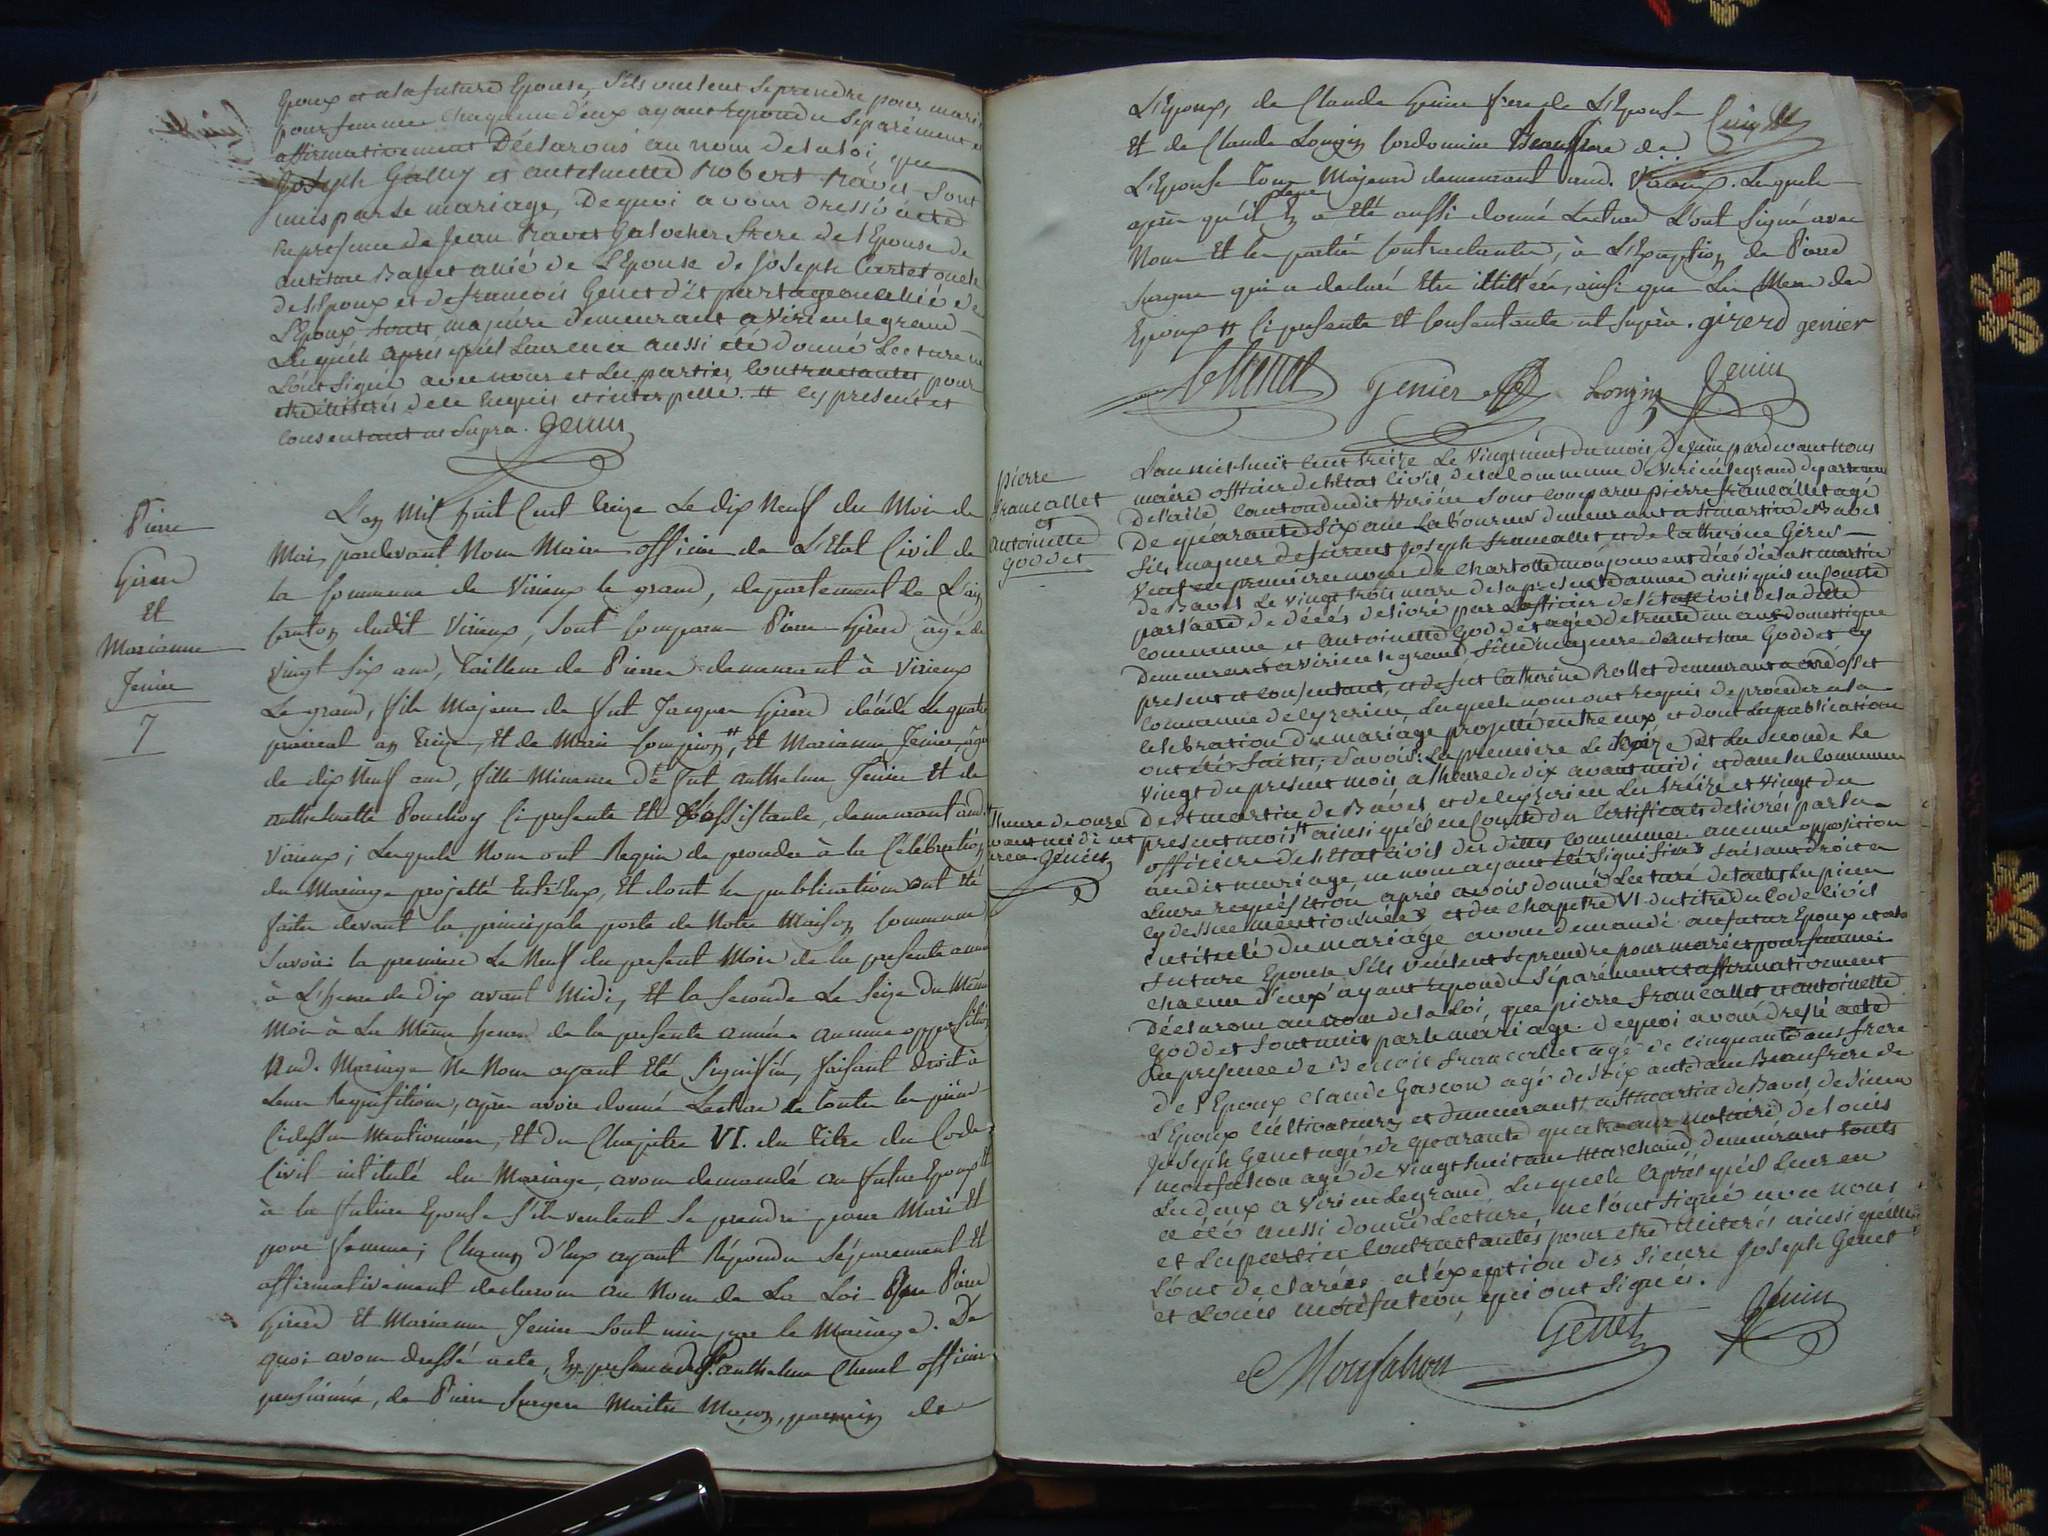 Epoux et a la future Epouse, s'ils veulent se prendre pour mari et
pour femme chaqunne d'eux ayant repondu séparément et
affirmativement Déclarons au nom de la loi, que
Joseph Gallay et antelmette Robert Ravet sont
unis par le mariage, De quoi avons dressé acte
En présence de Jean Ravet Galocher frere de l'Epouse de
antelme Ballet allié de L'Epouse de Joseph
de l'Epoux et de francois Genet dit partageou allié de
L'Epoux tous majeurs demeurant a Virieu le grand
Lesquels aprés qu'il Leur en a aussi été donné Lecture ne
L'ont signé avec nous et Les parties Contractantes pour
etre illiterés de ce Enquis et interpellé. # cy présent et
Consentant ut supra. Jenin
Pierre
Girerd
Et
Marianne
Jenier
7
L'an Mil huit Cent treize Le dix Neuf du Mois de
Mai, pardevant Nous Maire officier de L'Etat Civil de
la Commune de Virieux le grand, departement de L'ain
Canton dudit Virieux, Sont Comparu Pierre Girerd âgé de
vingt six ans, tailleur de Pierres demeurant à Virieux
Le grand, fils Majeur de fut Jacques Girerd décédé Le quatre
prairial an treize, Et de Marie #, Et Marianne Jenier âgée
de dix Neuf ans, fille Mineure de fut anthelme Jenier Et de
anthelmette Ponchoy Ci presente Et L'assistante, demeurant aud.
Virieux; Lesquels Nous ont Requis de proceder à la Célébration
du Mariage projetté Entr'Eux, Et dont les publications ont été
faites devant la principale porte de Notre Maison Commune
Savoir: la premiere Le Neuf du present Mois de la presente année
à L'heure de dix avant Midi, Et la Seconde Le Seize du Même
Mois à La Même heure de la presente année. aucune opposition
Aud. Mariage Ne Nous ayant Eté Signifiée, faisant droit à
Leur Requisition, après avoir donné Lecture de toutes les pièces
Ci dessus Mentionnées, Et du Chapitre VI. du titre du Code
Civil intitulé du Mariage, avons demandé au futur Epoux Et
à la future Epouse S'ils veulent Se prendre pour Mari Et
pour femme; Chacun d'Eux ayant Répondu Séparement Et
affirmativement declarons au Nom de La Loi Que Pierre
Girerd Et Marianne Jenier Sont unis par le Mariage. De
quoi avons dressé acte, En presence de Sr. anthelme Chenel officier
pensionné, de Pierre Surgere Maitre Maçon, parrain de
L'Epoux, de Claude Genier frere de L'Epouse
Et de Claude Longin Cordonnier Beaufrere de
L'Epouse tous Majeurs demeurant aud. Virieux. Lesquels
après qu'il Leur En a Eté aussi donné Lecture L'ont Signé avec
Nous Et les parties Contractantes, à L'Exception de Pierre
Surgere qui a declaré Etre illitéré, ainsi que La Mere de
Epoux # Ci presente Et Consentante ut Supra. girerd genier
Genier Longin Jenin
pierre
francallet
et
antoinette
goddet
L'an mil huit cent treize Le vingt neuf du mois De juin pardevant nous
maire officier de l'état civil de la Commune de Virieu le grand departement
de l'ain canton dudit Virieu sont comparu pierre francallet agé
De quarante six ans Laboureur demeurant a St martin de Bavel
fils majeur de furent joseph francallet et de Catherine Géres
veuf en premieres noces de Charlotte monjouvent décédée a St martin
de Bavel Le vingt trois mars de la présente année ainsi qu'il en Conste
par l'acte de décés delivré par L'officier de l'état civil de la ditte
Commune et Antoinette Goddet agée de trente un ans domestique
Demeurant a Virieu le grand fille majeure d'antelme Goddet cy
présent et Consentant, et de fut Catherine Rollet demeurant a
Commune de ceyzerieu, Lesquels nous ont requis de procéder a la
célébration du mariage projetté entre eux, et dont Les publications
ont été faites; Savoir: La premiere Le treize et La seconde Le
vingt du présent mois a l'heure de dix avant midi et dans les Communes
de St martin de Bavel et de ceyzerieu Les treize et vingt du
présent mois # ainsi qu'il en Conste des Certificats delivrés par les
officiers de l'état civil des dittes Communes. aucune opposition
au dit mariage ne nous ayant été signifiée faisant droit a
Leure requisition aprés avoir donné Lecture de toutes Les pieces
cy dessus mentionnées et du Chapitre VI du titre du Code civil
intitulé Du mariage avons demandé au futur Epoux et a la
future Epouse s'ils veulent se prendre pour mari et pour femme:
Chacun d'eux ayant repondu séparément et affirmativement
Déclarons au nom de la Loi, que pierre francallet et antoinette
Goddet sont unis par le mariage. De quoi avons dressé acte
En présence de Benoit francallet agé de cinquante ans frere
de l'Epoux Claude Gascon agé de soixante ans Beaufrere de
L'Epoux cultivateurs et demeurant a St martin de Bavel, de sieur
Joseph Genet agé de quarante quatre ans notaire de Louis
monfalcon agé de vingt huit ans marchand demeurant touts
Les deux a Virieu le grand, Lesquels Aprés qu'il Leur en
a été aussi donné Lecture, ne l'ont signé avec nous
et Les parties Contractantes pour etre illiterés ainsi qu'elles
L'ont declarées, a l'éxeption des sieurs Joseph Genet
et Louis monfalcon, qui ont signés.
# heure de onze
avant midi
Jenin
Genet Jenin
Monfalcon